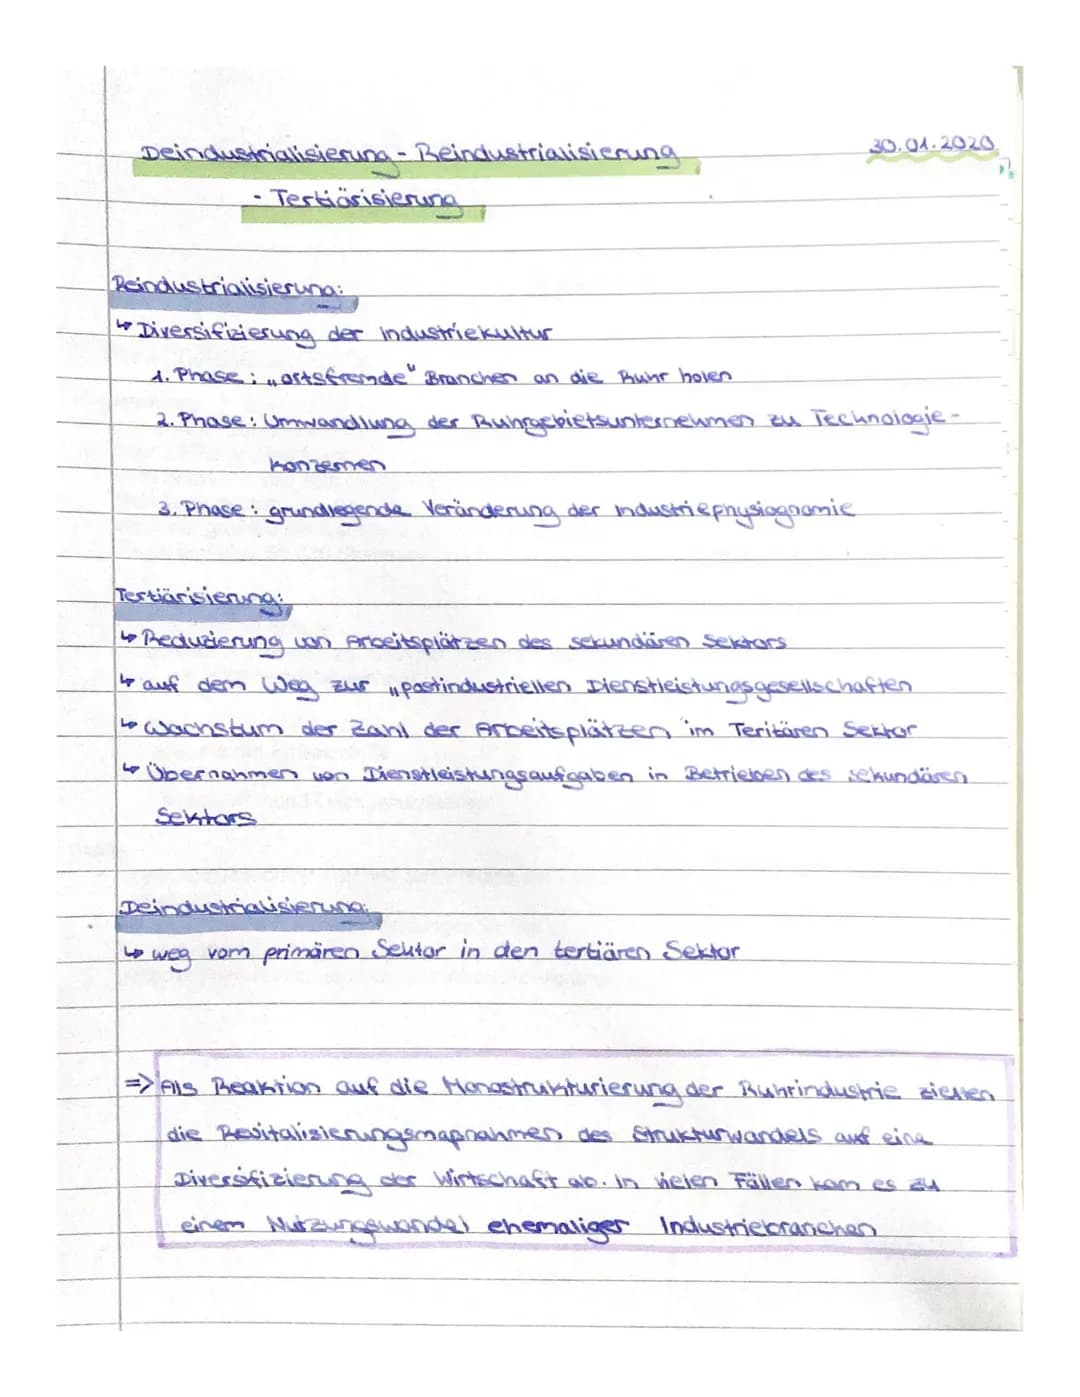 Deindustrialisierung - Reindustrialisierung
30.01.2020
- Tertiärisierung
Reindustrialisierung:
↳ Diversifizierung der Industriekultur
1. Phase: „ortsfremde" Branchen an die Ruhr holen
2. Phase: Umwandlung der Ruhrgebietsunternehmen zu Technologie-
konzernen
3. Phase: grundlegende Veränderung der Industriephysiognomie
Tertiärisierung:
↳ Reduzierung von Arbeitsplätzen des sekundären Sektors
↳ auf dem Weg zur „postindustriellen Dienstleistungsgesellschaften
↳ Wachstum der Zahl der Arbeitsplätzen im Teritären Sektor
↳ Übernahmen von Dienstleistungsaufgaben in Betrieben des sekundären
Sektors
Deindustrialisierung:
↳ weg vom primären Sektor in den tertiären Sektor
=> Als Reaktion auf die Monostrukturierung der Ruhrindustrie zielten
die Revitalisierungsmaßnahmen des Strukturwandels auf eine
Diversifizierung der Wirtschaft ab. In vielen Fällen kam es zu
einem Nutzungswandel ehemaliger Industriebranchen